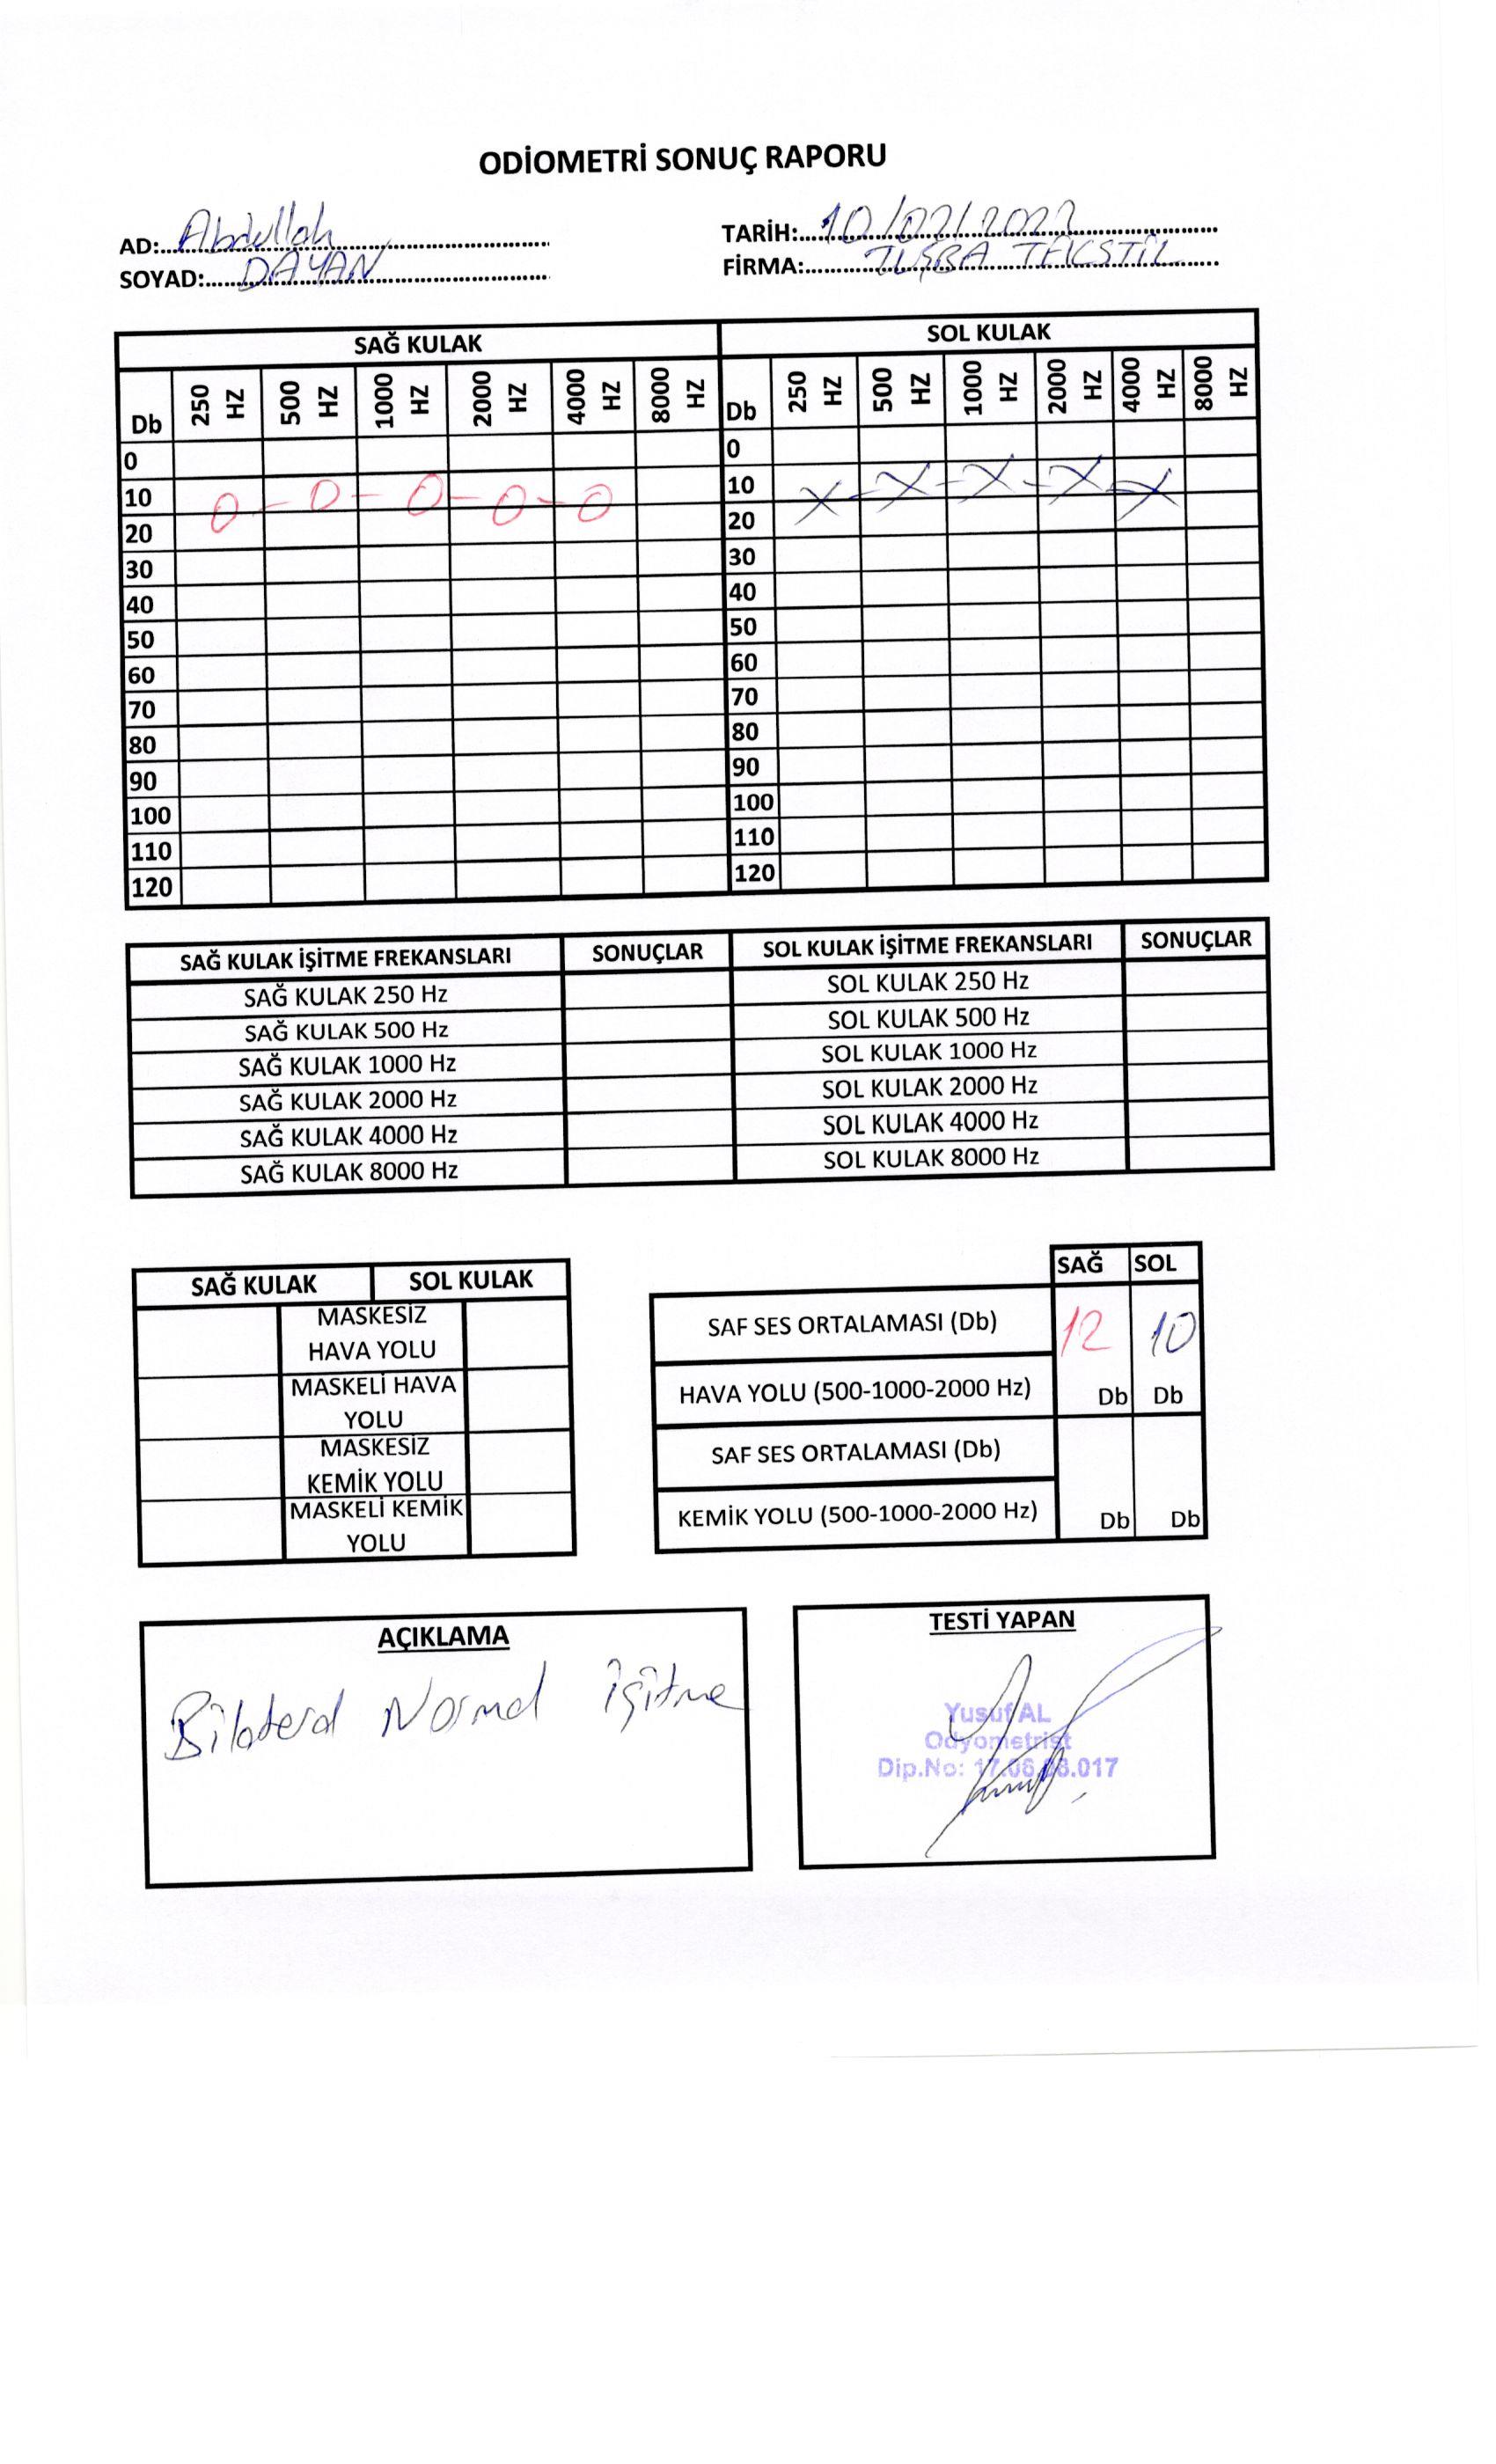 ODİOMETRİ SONUÇ RAPORU
AD: Abdullah TARİH: 10/02/2022
SOYAD: DAYAN FİRMA: TUŞBA TEKSTİL
SAĞ KULAK SOL KULAK
Db 250 HZ 500 HZ 1000 HZ 2000 HZ 4000 HZ 8000 HZ Db 250 HZ 500 HZ 1000 HZ 2000 HZ 4000 HZ 8000 HZ
0 0
10 10
20 20
30 30
40 40
50 50
60 60
70 70
80 80
90 90
100 100
110 110
120 120
SAĞ KULAK İŞİTME FREKANSLARI SONUÇLAR SOL KULAK İŞİTME FREKANSLARI SONUÇLAR
SAĞ KULAK 250 Hz SOL KULAK 250 Hz
SAĞ KULAK 500 Hz SOL KULAK 500 Hz
SAĞ KULAK 1000 Hz SOL KULAK 1000 Hz
SAĞ KULAK 2000 Hz SOL KULAK 2000 Hz
SAĞ KULAK 4000 Hz SOL KULAK 4000 Hz
SAĞ KULAK 8000 Hz SOL KULAK 8000 Hz
SAĞ KULAK SOL KULAK
MASKESİZ
HAVA YOLU
MASKELİ HAVA
YOLU
MASKESİZ
KEMİK YOLU
MASKELİ KEMİK
YOLU
SAĞ SOL
SAF SES ORTALAMASI (Db) 12 10
HAVA YOLU (500-1000-2000 Hz) Db Db
SAF SES ORTALAMASI (Db)
KEMİK YOLU (500-1000-2000 Hz) Db Db
AÇIKLAMA
Bilateral Normal işitme
TESTİ YAPAN
Yusuf AL
Odyometrist
Dip.No: 17.06.08.017